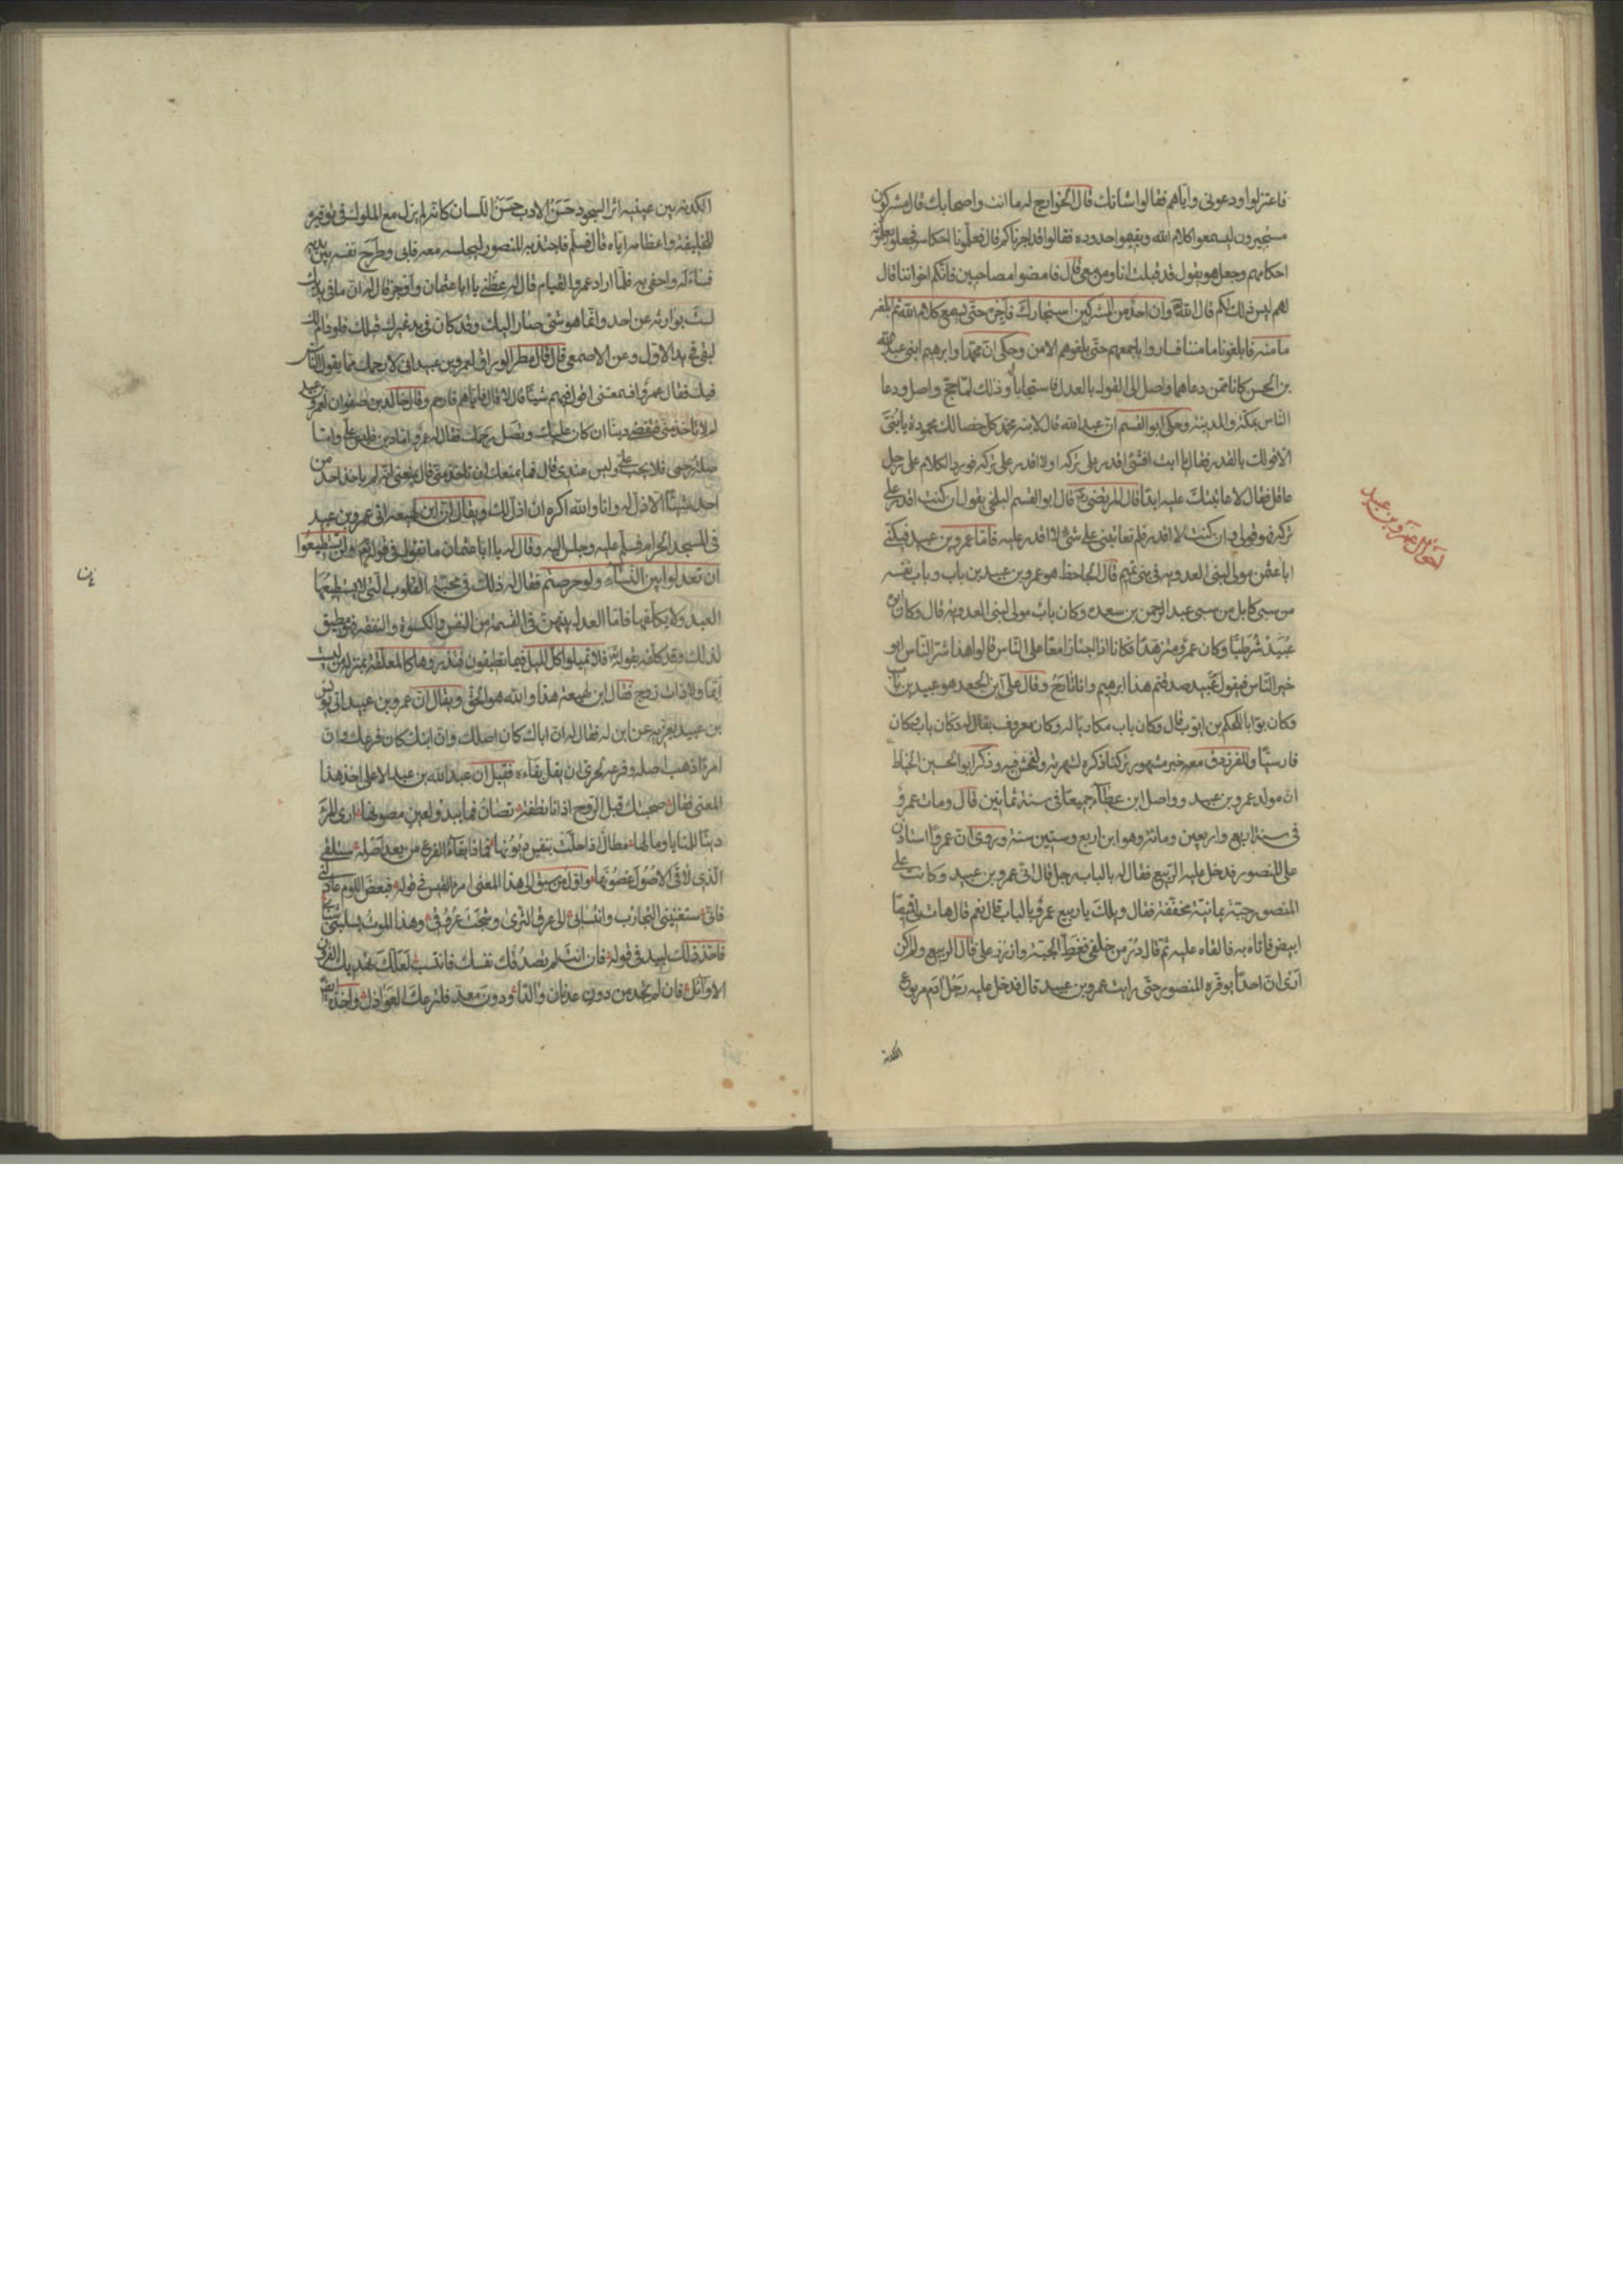 فاعتزلوا ودعونی وایاهم فقالوا شانك قال الخوارج له ما انت واصحابك قال مشركون
مستجیرون لیسمعوا كلام الله ویفهموا حدوده فقالوا قد اجرناكم قال فعلّمونا احكامه فجعلوا یعلّمونه
احكامهم وجعل هو یقول قد قبلت انا ومن معی قال فامضوا مصاحبین فانّكم اخواننا قال
لهم لیس ذلك لكم قال الله تعالی وان احدٌ من المشركین استجارك فاجره حتّی یسمع كلام الله ثم ابلغه
مامنه فابلغونا مامننا فساروا باجمعهم حتّی بلغوهم الامن وحكی انّ محمّدا وابرهیم ابنی عبد الله
بن الحسن كانا ممّن دعاهما واصل الی القول بالعدل فاستجابا وذلك لمّا حجّ واصل ودعا
النّاس بمكّة والمدینة وحكی ابو القسم انّ عبد الله قال لابنه محمّد كلّ خصالك محمودة یا بُنَیَّ
الّا قولك بالقدر فقال یا ابت افشئ اقدر علی تركه او لا اقدر علی تركه فورد الكلام علی رجل
عاقل فقال لا عاتبتك علیه ابدًا قال المرتضی قال ابو القسم البلخی یقول ان كنت اقدر علی
تركه فهو قولی وان كنت لا اقدر فلم تعاتبنی علی شئ لا اقدر علیه فامّا عمرو بن عبید فیكنّی
ابا عثمن مولی لبنی العدویه من بنی تمیم قال الجاحظ هو عمرو بن عبید بن باب وباب نفسه
من سبی كابل من سبی عبد الرحمن بن سمره وكان باب مولی لبنی العدویه قال وكان ابوه
عُبَیدٌ شرطیًا وكان عمرو متزهدًا فكانا اذا اجتازا معًا علی النّاس قالوا هذا شرّ النّاس ابو
خیر النّاس فیقول عُبَید صدقتم هذا ابرهیم وانا تارح وقال علی ابن الجعد هو عبید بن باب
وكان بوّابا للحكم بن ایّوب قال وكان باب مكاریّا له دكان معروف یقال له دكان باب وكان
فارسیًّا وللفرزدق معه خبر مشهور تركنا ذكره لشهرته ولفحش فیه وذكر ابو الحسین الخیّاط
انّ مولد عمرو بن عبید وواصل ابن عطآء جمیعًا فی سنة ثمانین قال ومات عمرو
فی سنة اربع واربعین ومائة وهو ابن اربع وستین سنة وروی انّ عمروًا استاذن
علی المنصور فدخل علیه الربیع فقال له بالباب رجل قال انّی عمرو بن عبید وكانت علی
المنصور جبّة یمانیّة مخففة فقال ویلك یا ربیع عمرو بالباب قال نعم قال هات لی قمیصًا
ابیض فاتاه به فالقاه علیه ثم قال درّ من خلفی فغط الجبّة وازرر علی قال الربیع ولم اكن
اری انّ احدًا یوقّره المنصور حتّی رایت عمرو بن عبید قال فدخل علیه رَجُل آدم مربوع
الكدنه
احوال عمرو بن عبید
الكدنه بین عینیه اثر السجود حَسَنُ الادب حَسَنُ اللّسان كانّه لم یزل مع الملوك فی توقیره
للخلیفة واعظامه ایّاه قال فسلّم فاجتذبه المنصور لیجلسه معه فابی وطرح نفسه بین یدیه
فساءله واحفی به فلمّا اراد عمرو القیام قال له عظنی یا ابا عثمان واوجز قال له انّ ما فی یدیك
لستَ بوارثه عن احد وانّما هو شئ صار الیك وقد كان فی ید غیرك قبلك فلو دام لك
لبقی فی ید الاوّل وعن الاصمعی قال قال مطر الورّاق لعمرو بن عبید انّی لارحمك ممّا یقول النّاس
فیك فقال عمرو افسمعتنی اقول فیهم شیئًا قال لا قال فایّاهم فارحم وقال خالد بن صفوان لعمرو بن عبید
لم لا تاخذ منّی فتقضی دینا ان كان علیك وتصل رحمك فقال له عمرو امّا دین فلیس علیّ وامّا
صلة رحمی فلا یجب علیّ ولیس عندی قال فما یمنعك ان تاخذ منّی قال یمنعنی انّه لم یاخذ احد من
احد شیئًا الّا ذلّ له وانا والله اكره ان اذلّ لك ویقال انّ ابن لهیعه اتی عمرو بن عبید
فی المسجد الحرام فسلّم علیه وجلس الیه وقال له یا ابا عثمان ما تقول فی قوله تعالی ولن تستطیعُوا
ان تعدلوا بین النّسآء ولو حرصتم فقال له ذلك فی محبّة القلوب الّتی لا یستطیعها
العبد ولا یكلّفها فامّا العدل بینهنّ فی القسمة من النفس والكسوة والنفقه فهو مطیق
لذلك وقد كلّفه بقوله تعالی فلا تمیلوا كلّ المیل فیما تطیقون فتذروها كالمعلّقة بمنزلة من لیست
ایّما ولا ذات زوج فقال ابن لهیعة هذا والله هو الحقّ ویقال انّ عمرو بن عبید اتی یونس
بن عبید یعزیه عن ابن له فقال له انّ اباك كان اصلك وانّ ابنك كان فرعك وانّ
امرءًا ذهب اصله وفرعه لحری ان یقلّ بقاءه فقیل ان عبد الله بن عبد الاعلی اخذ هذا
المعنی فقال
فاخذ ذلك لبید فی قوله فان انت لم تصدُقك نفسك فانتسب لعلّك تهدیك القرون
الاوائل فان لم تجد من دون عدنان والدًا ودون معدّ فلتزعك العواذل واخذ